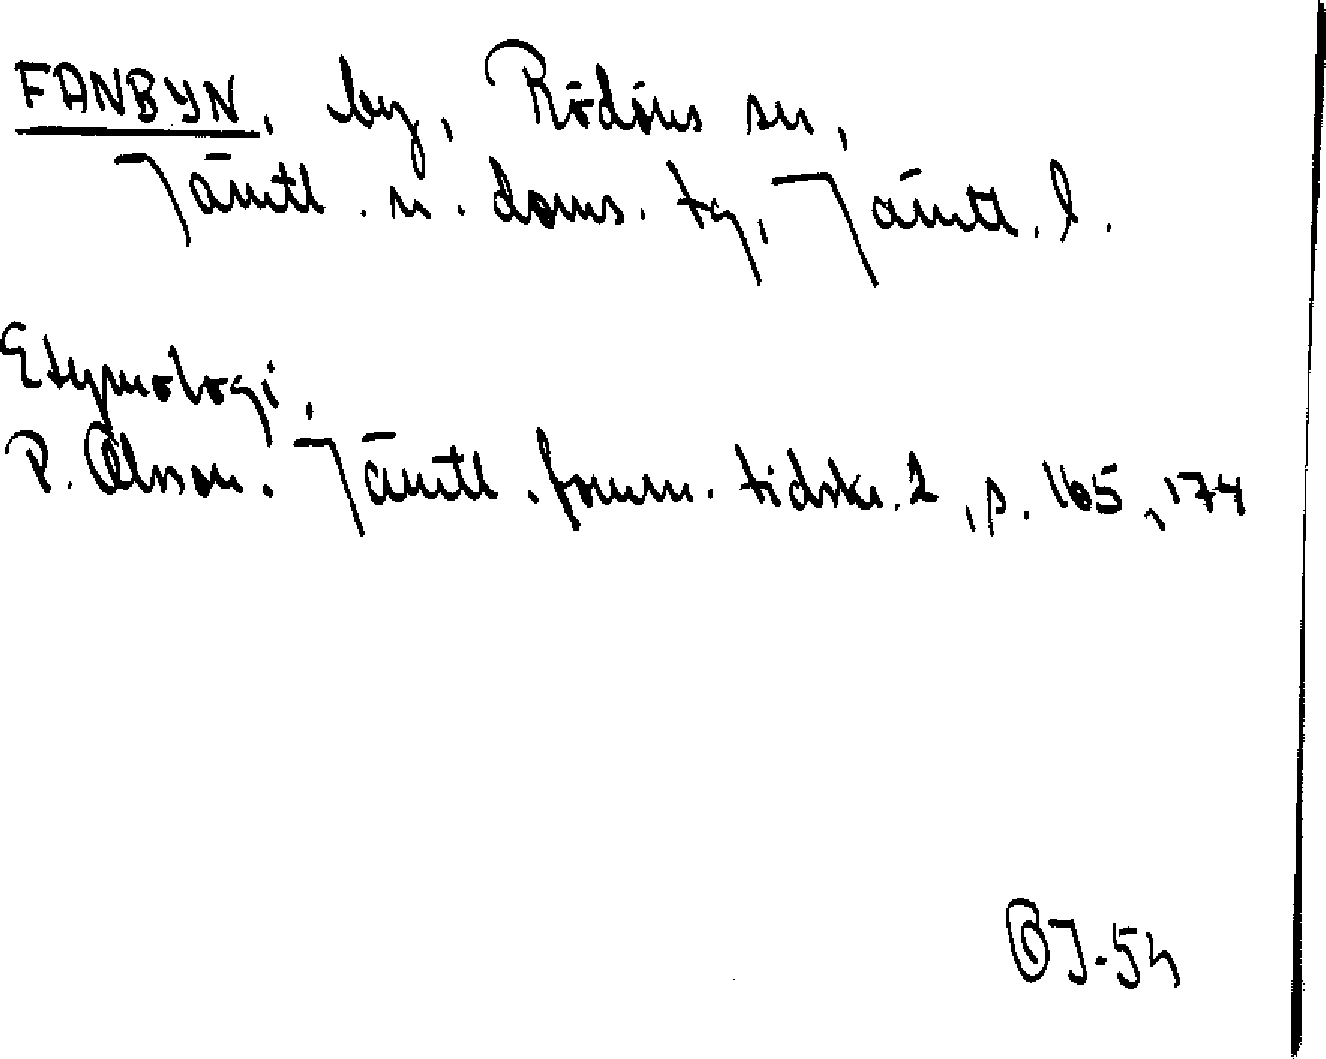 FANBYN, by, Rödöns sn,
Jämtl. n. doms. tg, Jämtl. l.
Etymologi,
P. Olsson. Jämtl. fornm. tidskr. 2, s. 165, 174
ÖJ-54